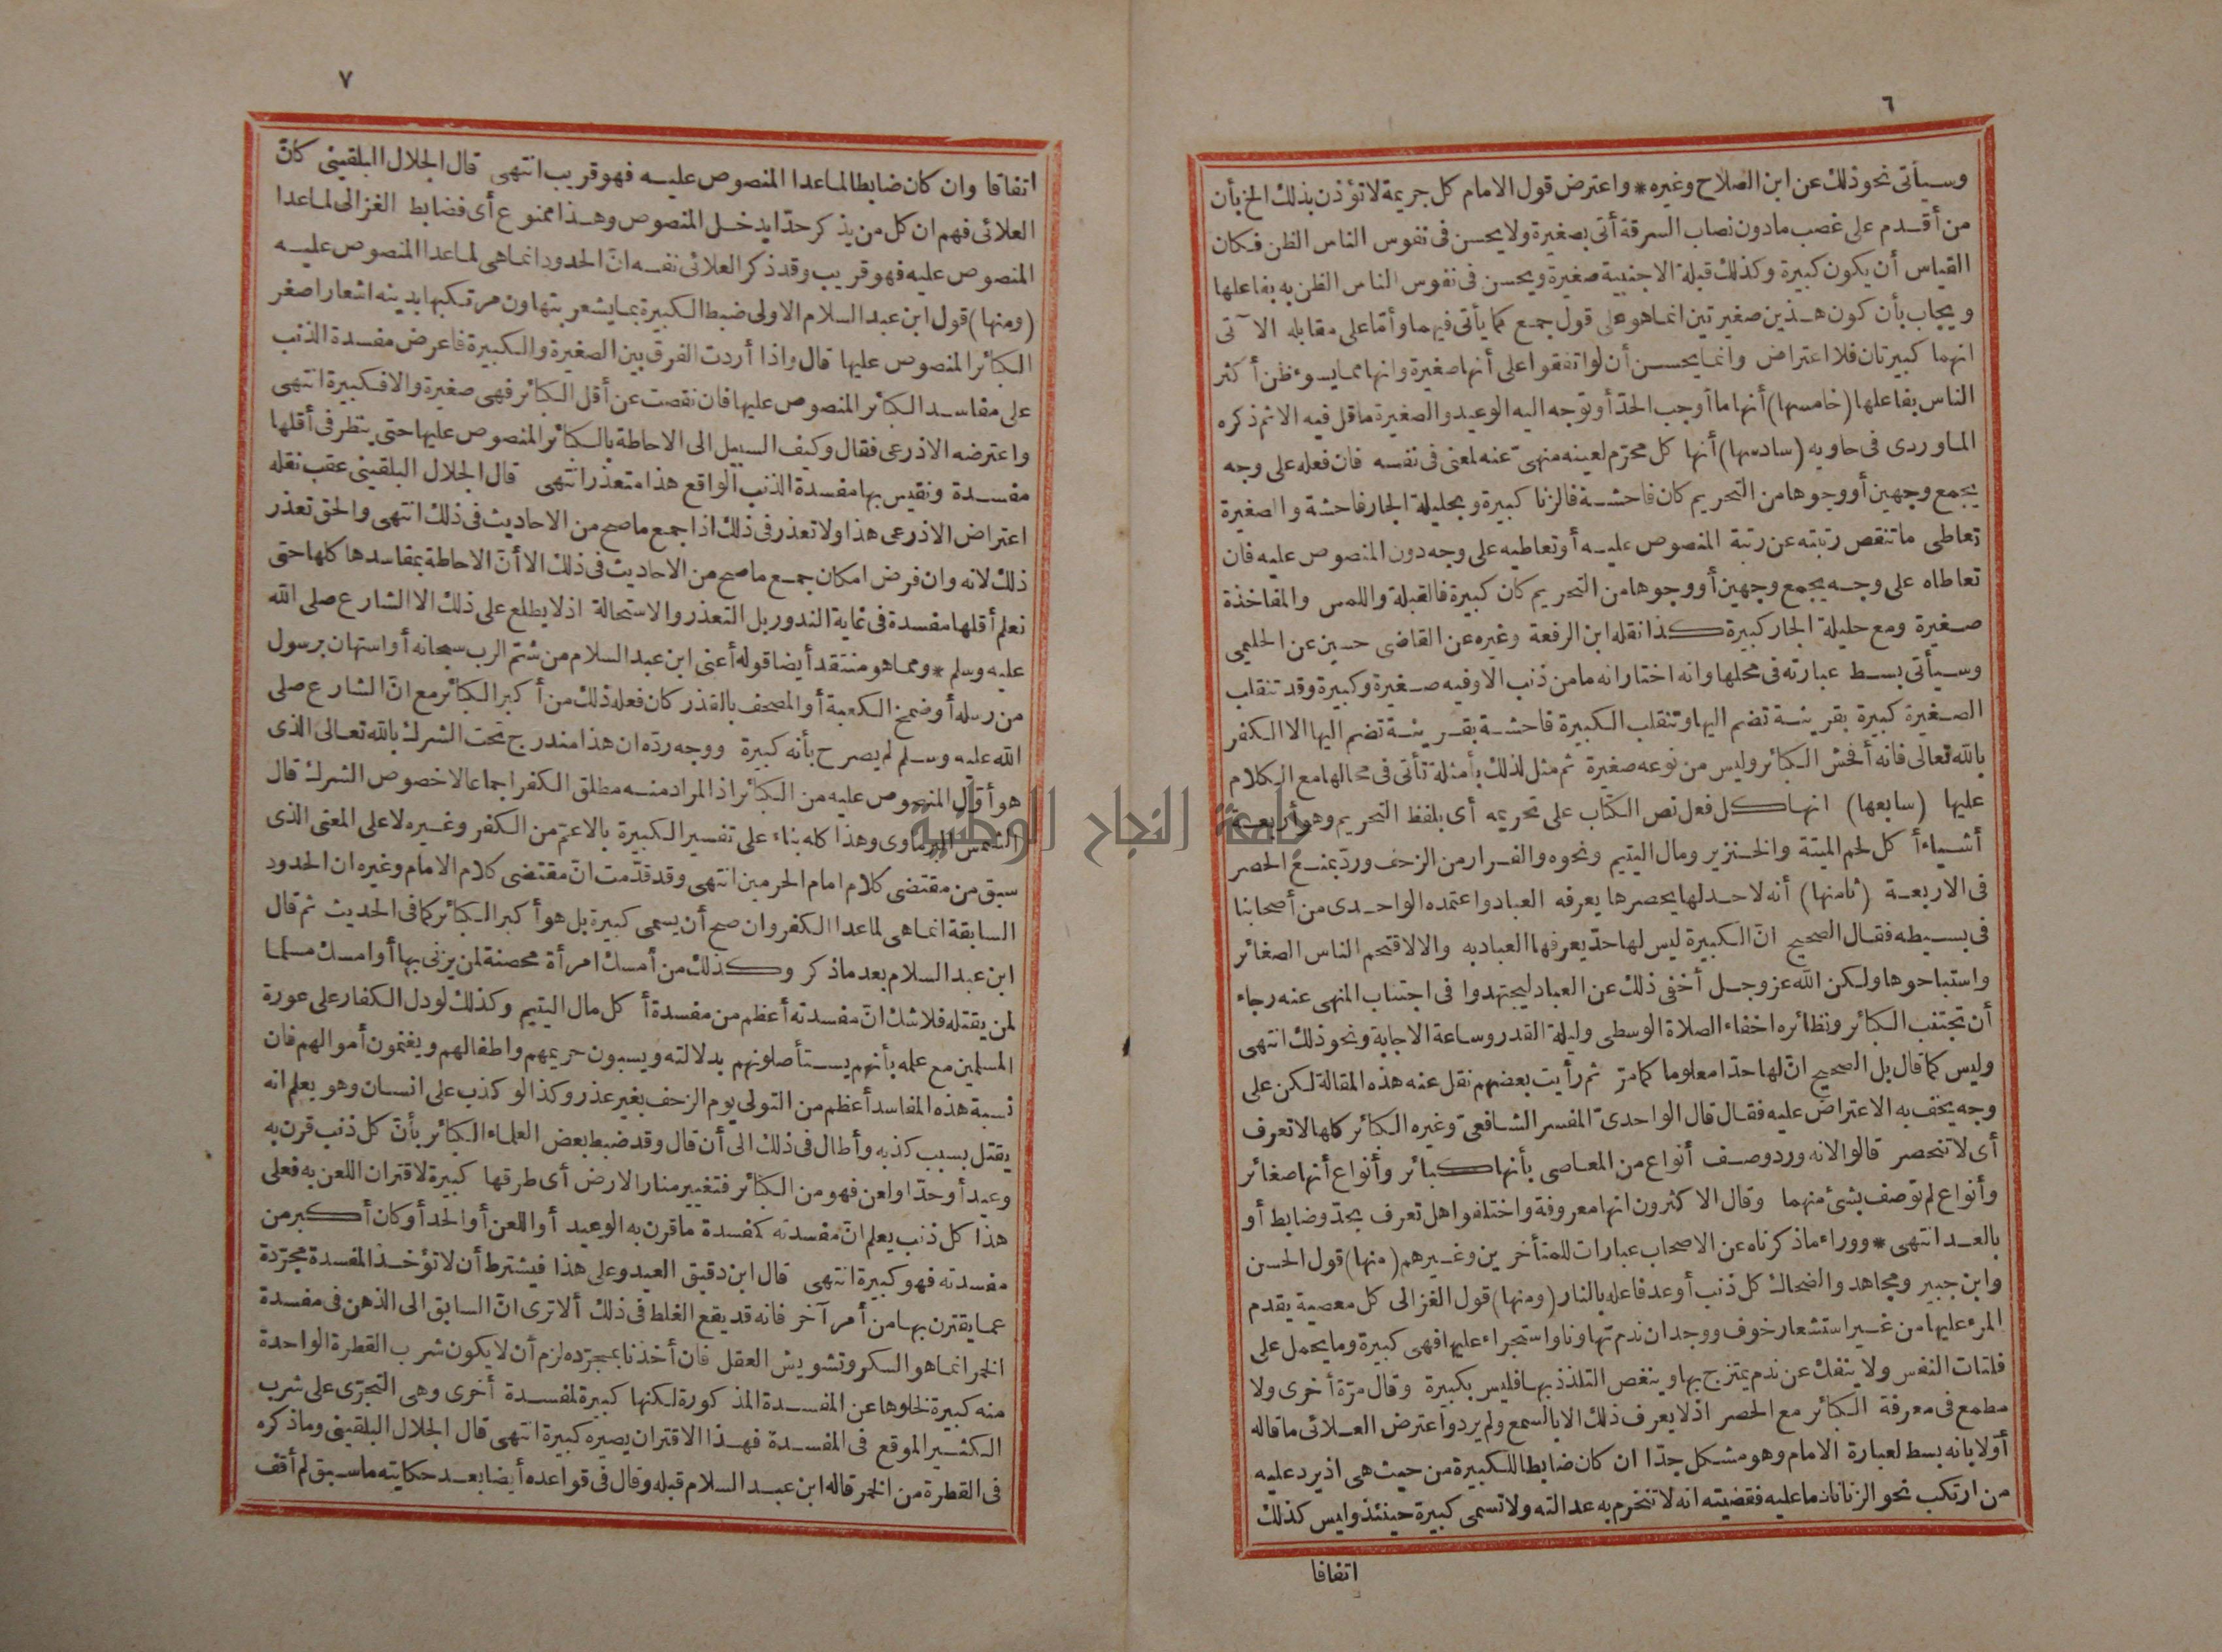 ٦
وسيأتى نحو ذلك عن ابن الصلاح وغيره * واعترض قول الامام كل جريمة لا تؤذن بذلك الخ بأن
من أقدم على غصب ما دون نصاب السرقة أتى بصغيرة ولا يحسن فى نفوس الناس الظن فكان
القياس أن يكون كبيرة وكذلك قبلة الاجنبية صغيرة ويحسن فى نفوس الناس الظن به بفاعلها
ويجاب بأن كون هذين صغيرتين انما هو على قول جمع كما يأتى فيهما وأما على مقابله الآتى
انهما كبيرتان فلا اعتراض وانما يحسن أن لو اتفقوا على أنها صغيرة وانها مما يسوء ظن أكثر
الناس بفاعلها (خامسها) أنها ما أوجب الحدّ أو توجه اليه الوعيد والصغيرة ما قل فيه الاثم ذكره
الماوردى فى حاويه (سادسها) أنها كل محرّم لعينه منهىّ عنه لمعنى فى نفسه فان فعله على وجه
يجمع وجهين أو وجوها من التحريم كان فاحشة فالزنا كبيرة وبحليلة الجار فاحشة والصغيرة
تعاطى ما تنقص رتبته عن رتبة المنصوص عليه أو تعاطيه على وجه دون المنصوص عليه فان
تعاطاه على وجه يجمع وجهين أو وجوها من التحريم كان كبيرة فالقبلة واللمس والمفاخذة
صغيرة ومع حليلة الجار كبيرة كذا نقله ابن الرفعة وغيره عن القاضى حسين عن الحليمى
وسيأتى بسط عبارته فى محلها وانه اختار انه ما من ذنب الا وفيه صغيرة وكبيرة وقد تنقلب
الصغيرة كبيرة بقرينة تضم اليها وتنقلب الكبيرة فاحشة بقرينة تضم اليها الا الكفر
بالله تعالى فانه أفحش الكبائر وليس من نوعه صغيرة ثم مثل لذلك بأمثلة تأتى فى محالها مع الكلام
عليها (سابعها) انها كل فعل نص الكتاب على تحريمه أى بلفظ التحريم وهو أربعة
أشياء أكل لحم الميتة والخنزير ومال اليتيم ونحوه والفرار من الزحف وردّ بمنع الحصر
فى الاربعة (ثامنها) أنه لا حد لها يحصرها يعرفه العباد واعتمده الواحدى من أصحابنا
فى بسيطه فقال الصحيح انّ الكبيرة ليس لها حدّ يعرفها العباد به والا لاقتحم الناس الصغائر
واستباحوها ولكن الله عز وجل أخفى ذلك عن العباد ليجتهدوا فى اجتناب المنهى عنه رجاء
أن تجتنب الكبائر ونظائره اخفاء الصلاة الوسطى وليلة القدر وساعة الاجابة ونحو ذلك انتهى
وليس كما قال بل الصحيح انّ لها حدّا معلوما كما مرّ ثم رأيت بعضهم نقل عنه هذه المقالة لكن على
وجه يخف به الاعتراض عليه فقال قال الواحدىّ المفسر الشافعىّ وغيره الكبائر كلها لا تعرف
أى لا تنحصر قالوا لانه ورد وصف أنواع من المعاصى بأنها كبائر وأنواع أنها صغائر
وأنواع لم توصف بشئ منهما وقال الاكثرون انها معروفة واختلفوا هل تعرف بحدّ وضابط أو
بالعد انتهى * ووراء ما ذكرناه عن الاصحاب عبارات للمتأخرين وغيرهم (منها) قول الحسن
وابن جبير ومجاهد والضحاك كل ذنب أوعد فاعله بالنار (ومنها) قول الغزالى كل معصية يقدم
المرء عليها من غير استشعار خوف ووجدان ندم تهاونا واستجراء عليها فهى كبيرة وما يحمل على
فلتات النفس ولا ينفك عن ندم يمتزج بها وينغص التلذذ بها فليس بكبيرة وقال مرّة أخرى ولا
مطمع فى معرفة الكبائر مع الحصر اذ لا يعرف ذلك الا بالسمع ولم يرد واعترض العلائى ما قاله
أوّلا بانه بسط لعبارة الامام وهو مشكل جدّا ان كان ضابطا للكبيرة من حيث هى اذ يرد عليه
من ارتكب نحو الزنا نادما عليه فقضيته انه لا تنخرم به عدالته ولا تسمى كبيرة حينئذ وليس كذلك
اتفاقا
٧
اتفاقا وان كان ضابطا لما عدا المنصوص عليه فهو قريب انتهى قال الجلال البلقينى كانّ
العلائى فهم ان كل من يذكر حدّا يدخل المنصوص وهذا ممنوع أى فضابط الغزالى لما عدا
المنصوص عليه فهو قريب وقد ذكر العلائى نفسه انّ الحدود انما هى لما عدا المنصوص عليه
(ومنها) قول ابن عبد السلام الاولى ضبط الكبيرة بما يشعر بتهاون مرتكبها بدينه اشعار اصغر
الكبائر المنصوص عليها قال واذا أردت الفرق بين الصغيرة والكبيرة فاعرض مفسدة الذنب
على مفاسد الكبائر المنصوص عليها فان نقصت عن أقل الكبائر فهى صغيرة والا فكبيرة انتهى
واعترضه الاذرعى فقال وكيف السبيل الى الاحاطة بالكبائر المنصوص عليها حتى ينظر فى أقلها
مفسدة ونقيس بها مفسدة الذنب الواقع هذا متعذر انتهى قال الجلال البلقينى عقب نقله
اعتراض الاذرعى هذا ولا تعذر فى ذلك اذا جمع ما صح من الاحاديث فى ذلك انتهى والحق تعذر
ذلك لانه وان فرض امكان جمع ما صح من الاحاديث فى ذلك الا أنّ الاحاطة بمفاسدها كلها حتى
نعلم أقلها مفسدة فى غاية الندور بل التعذر والاستحالة اذ لا يطلع على ذلك الا الشارع صلى الله
عليه وسلم * ومما هو منتقد أيضا قوله أعنى ابن عبد السلام من شتم الرب سبحانه أو استهان برسول
من رسله أو ضمخ الكعبة أو المصحف بالقذر كان فعله ذلك من أكبر الكبائر مع انّ الشارع صلى
الله عليه وسلم لم يصرح بأنه كبيرة ووجه ردّه ان هذا مندرج تحت الشرك بالله تعالى الذى
هو أوّل المنصوص عليه من الكبائر اذ المراد منه مطلق الكفر اجماعا لا خصوص الشرك قال
الشمس البرماوى وهذا كله بناء على تفسير الكبيرة بالاعم من الكفر وغيره لا على المعنى الذى
سبق من مقتضى كلام امام الحرمين انتهى وقد قدّمت انّ مقتضى كلام الامام وغيره ان الحدود
السابقة انما هى لما عدا الكفر وان صح أن يسمى كبيرة بل هو أكبر الكبائر كما فى الحديث ثم قال
ابن عبد السلام بعد ما ذكر وكذلك من أمسك امرأة محصنة لمن يزنى بها أو امسك مسلما
لمن يقتله فلا شك انّ مفسدته أعظم من مفسدة أكل مال اليتيم وكذلك لو دل الكفار على عورة
المسلمين مع علمه بأنهم يستأصلونهم بدلالته ويسبون حريمهم واطفالهم ويغنمون أموالهم فان
نسبة هذه المفاسد أعظم من التولى يوم الزحف بغير عذر وكذا لو كذب على انسان وهو يعلم انه
يقتل بسبب كذبه وأطال فى ذلك الى أن قال وقد ضبط بعض العلماء الكبائر بأنّ كل ذنب قرن به
وعيد أو حدّ او لعن فهو من الكبائر فتغيير منار الارض أى طرقها كبيرة لاقتران اللعن به فعلى
هذا كل ذنب يعلم انّ مفسدته كمفسدة ما قرن به الوعيد أو اللعن أو الحد أو كان أكبر من
مفسدته فهو كبيرة انتهى قال ابن دقيق العيد وعلى هذا فيشترط أن لا تؤخذ المفسدة مجرّدة
عما يقترن بها من أمر آخر فانه قد يقع الغلط فى ذلك ألا ترى انّ السابق الى الذهن فى مفسدة
الخمر انما هو السكر وتشويش العقل فان أخذنا بمجرّده لزم أن لا يكون شرب القطرة الواحدة
منه كبيرة لخلوها عن المفسدة المذكورة لكنها كبيرة لمفسدة أخرى وهى التجرّى على شرب
الكثير الموقع فى المفسدة فهذا الاقتران يصيره كبيرة انتهى قال الجلال البلقينى وما ذكره
فى القطرة من الخمر قاله ابن عبد السلام قبله وقال فى قواعده أيضا بعد حكايته ما سبق لم أقف
جامعة النجاح الوطنية